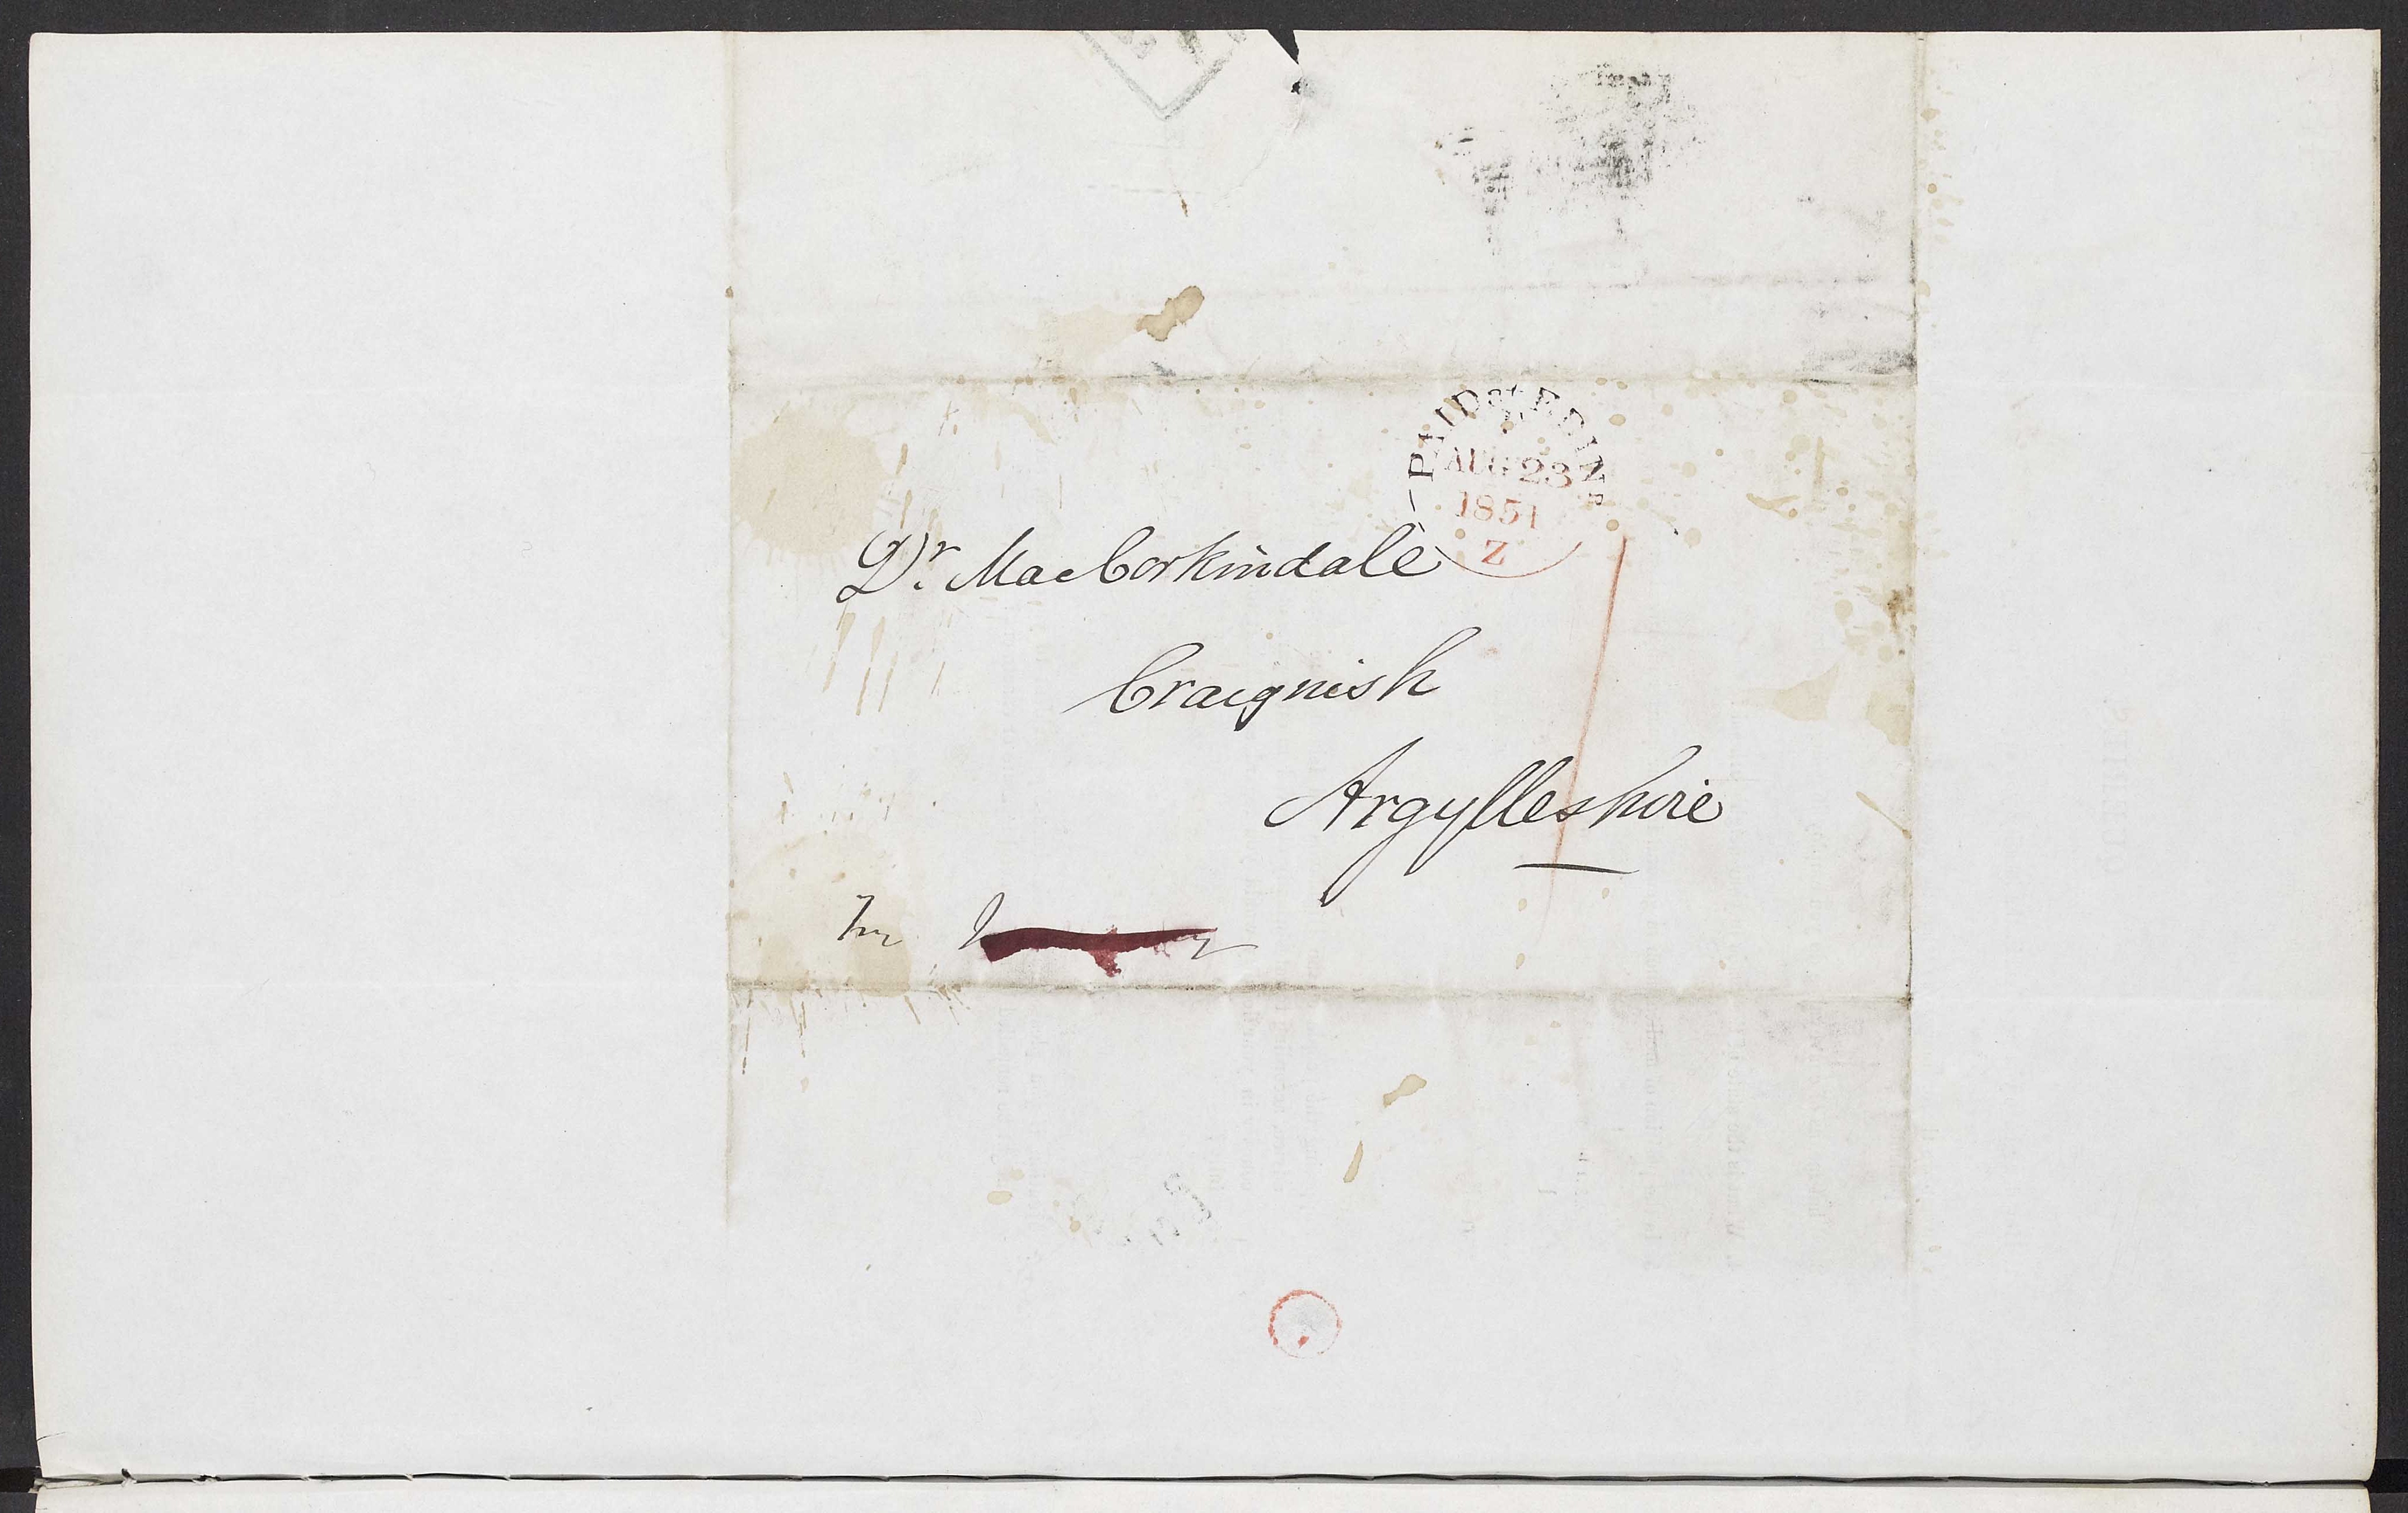 PAID at EDINR
AUG 23
1851
Z
Dr. MacCorkindale
Craignish
Argylleshire